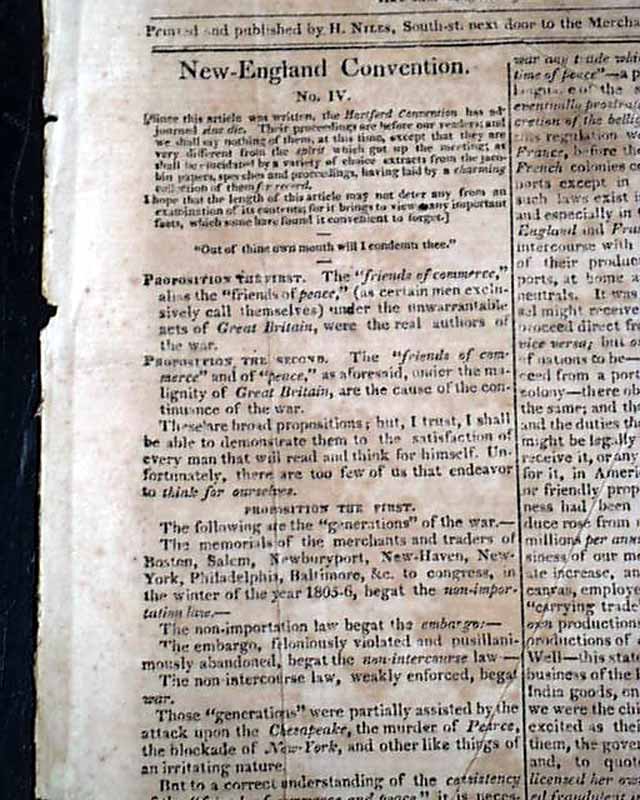 Printed and published by H. NILES, South-st. next door to the Mercha
New-England Convention.
No. IV.
[Since this article was written, the Hartford Convention has ad-
journed sine die. Their proceedings are before our readers; and
we shall say nothing of them, at this time, except that they are
very different from the spirit which got up the meeting; as
shall be elucidated by a variety of choice extracts from the jaco-
bin papers, speeches and proceedings, having laid by a charming
collection of them for record.
I hope that the length of this article may not deter any from an
examination of its contents; for it brings to view many important
facts, which some have found it convenient to forget.]
"Out of thine own mouth will I condemn thee."
PROPOSITION THE FIRST. The "friends of commerce,"
alias the "friends of peace," (as certain men exclu-
sively call themselves) under the unwarrantable
acts of Great Britain, were the real authors of
the war.
PROPOSITION THE SECOND. The "friends of com-
merce" and of "peace," as aforesaid, under the ma-
lignity of Great Britain, are the cause of the con-
tinuance of the war.
These are broad propositions; but, I trust, I shall
be able to demonstrate them to the satisfaction of
every man that will read and think for himself. Un-
fortunately, there are too few of us that endeavor
to think for ourselves.
PROPOSITION THE FIRST.
The following are the "generations" of the war.—
The memorials of the merchants and traders of
Boston, Salem, Newburyport, New-Haven, New-
York, Philadelphia, Baltimore, &c. to congress, in
the winter of the year 1805-6, begat the non-impor-
tation law.—
The non-importation law begat the embargo:—
The embargo, feloniously violated and pusillani-
mously abandoned, begat the non-intercourse law—
The non-intercourse law, weakly enforced, begat
war.
Those "generations" were partially assisted by the
attack upon the Chesapeake, the murder of Pearce,
the blockade of New-York, and other like things of
an irritating nature.
But to a correct understanding of the consistency
of the "friends of commerce and peace" it is neces-
war any trade whi
time of peace"—a p
of the s
eventually prostra
cretion of the bellig
this regulation w
France, before the
French colonies c
ports except in
such laws exist i
and especially in
England and Fran
intercourse with
of their produc
ports, at home a
neutrals. It was
sel might receive
proceed direct fr
vice versa; but o
of nations to be—
ceed from a port
colony—there ob
the same; and th
and the duties th
might be legally
receive it, or any
for it, in Americ
or friendly prop
ness had been
duce rose from
millions per ann
siness of our me
ale increase, an
canvas, employe
"carrying trade
own production
productions of
Well—this state
business of the
India goods, on
we were the chi
excited as thei
them, the gover
and, to quote
licensed her ow
ed fraudulent